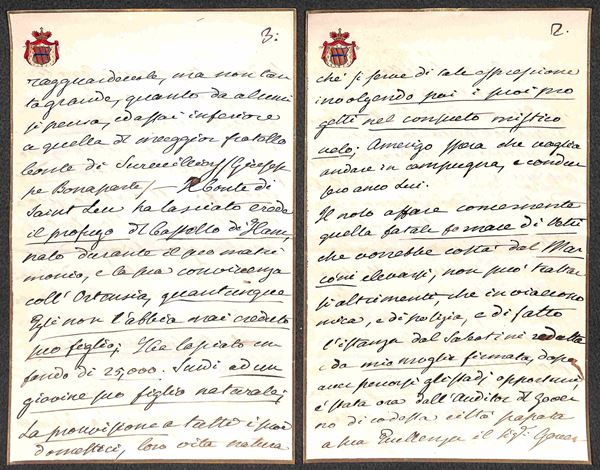 3:
ragguardevole, ma non tan
ta grande, quanto da alcuni
si pensa, ed assai inferiore
a quella del maggior fratello
Conte di Survilliers /Giusep
pe Bonaparte/ — Il Conte di
Saint Leu ha lasciato erede
il profugo del Castello di Ham,
nato durante il suo matri
monio, e la sua convivenza
coll' Ortensia, quantunque
Egli non l'abbia mai creduto
suo figlio; Ha lasciato un
fondo di 25,000. Scudi ad un
giovine suo figlio naturale;
La provvisione a tutti i suoi
domestici, loro vita natura
2.
ché si serve di tale espressione
involgendo poi i suoi pro
getti nel consueto mistico
velo; Amerigo spera che voglia
andare in campagna, e condur
seco anco Lui.
Il noto affare concernente
quella fatale fornace di Vetri
che vorrebbe costà dal Mar
coni elevarsi, non può trattar
si altrimenti, che in via econo
mica, e di polizia, e di fatto
l'istanza dal Sabatini redatta
e da mia moglie firmata, dopo
aver percorsi gli stadj opportuni,
è stata ora dall'Auditor del Gover
no di codesta città passata
a Sua Eccellenza il Sig.r Gover